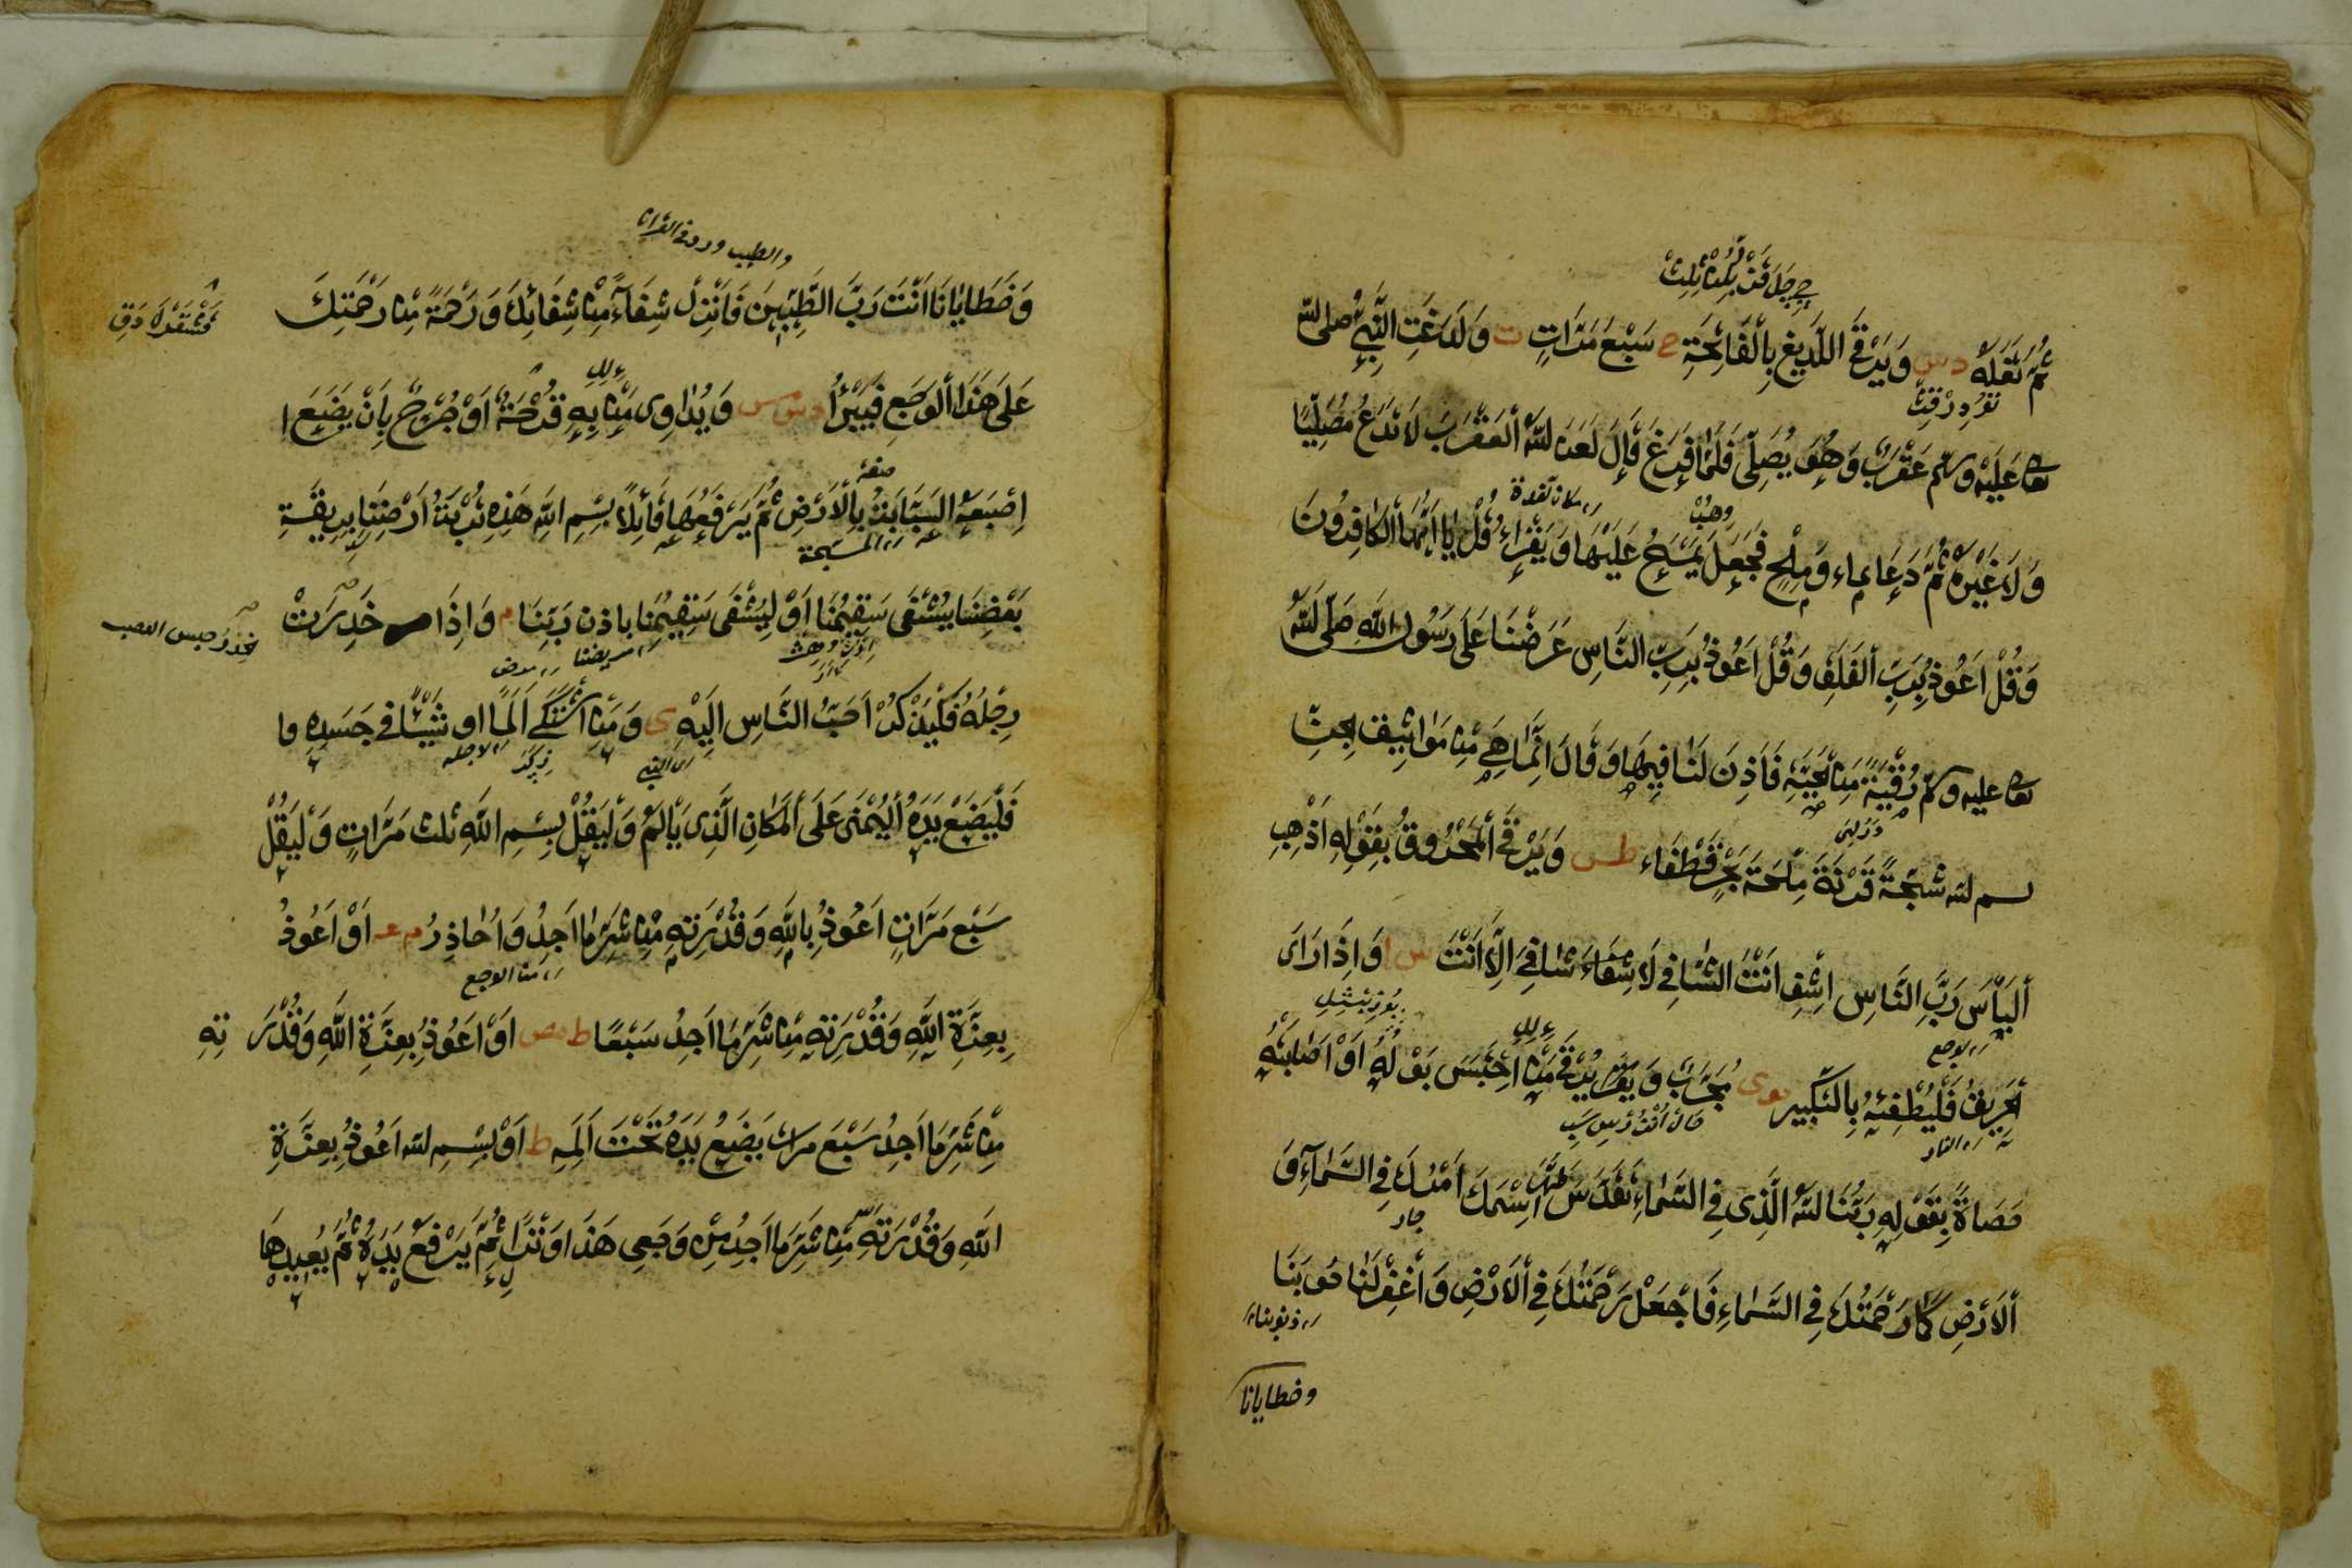 ثُمَّ تَفَلَهُ دس وَيَرْقَى اللَّدِيغَ بِالْفَاتِحَةِ ع سَبْعَ مَرَّاتٍ ت وَلَدَغَتِ النَّبِيَّ صلى الله
تعا عَلَيْهِ وسلم عَقْرَبٌ وَهُوَ يُصَلِّي فَلَمَّا فَرَغَ قَالَ لَعَنَ اللهُ الْعَقْرَبَ لَا تَدَعُ مُصَلِّيًا
وَلَا غَيْرَهُ ثُمَّ دَعَا بِمَاء وَمِلْحٍ فَجَعَلَ يَمْسَحُ عَلَيْهَا وَيَقْرَاءُ قُلْ يَا اَيُّهَا الْكَافِرُونَ
وَقُلْ اَعُوذُ بِرَبِّ الْفَلَقِ وَقُلْ اَعُوذُ بِرَبِّ النَّاسِ عَرَضْنَا عَلَى رَسُولِ اللهِ صَلَّى اللهُ
تعا عليه وسلم رُقْيَةً مِنَ الْحَيَّةِ فَاَذِنَ لَنَا فِيهَا وَقَالَ اِنَّمَا هِيَ مِنْ مَوَاثِيقِ الْجِنِّ
بسم الله شَجَّةٌ قَرْنَةٌ مِلْحَةُ بَحْرٍ قَفْطَاء طس وَيَرْقَى الْمَحْرُوقُ بِقَوْلِهِ اَذْهِبِ
الْبَأْسَ رَبَّ النَّاسِ اِشْفِ اَنْتَ الشَّافِي لَا شِفَاءَ شَافِيَ اِلَّا اَنْتَ س ا وَاِذَا رَاَى
الْحَرِيقَ فَلْيُطْفِئْهُ بِالتَّكْبِيرِ ص ى مُجَرَّبٌ وَيَرْقَى مَنِ احْتَبَسَ بَوْلُهُ اَوْ اَصَابَتْهُ
حَصَاةٌ بِقَوْلِهِ رَبُّنَا اللهُ الَّذِي فِي السَّمَاءِ تَقَدَّسَ اسْمُكَ اَمْرُكَ فِي السَّمَاءِ وَ
الْاَرْضِ كَمَا رَحْمَتُكَ فِي السَّمَاءِ فَاجْعَلْ رَحْمَتَكَ فِي الْاَرْضِ وَاغْفِرْ لَنَا حُوبَنَا
ذنوبنا
وخطايانا
والطيب
وَخَطَايَانَا اَنْتَ رَبَّ الطَّيِّبِينَ فَاَنْزِلْ شِفَاءً مِنْ شِفَائِكَ وَرَحْمَةً مِنْ رَحْمَتِكَ
عَلَى هَذَا الْوَجَعِ فَيَبْرَأُ دس مس وَيُدَاوِي مَنْ بِهِ قُرْحَةٌ اَوْ جُرْحٌ بِاَنْ يَضَعَ ا
اِصْبَعَهُ السَّبَّابَةَ بِالْاَرْضِ ثُمَّ يَرْفَعُهَا قَائِلًا بِسْمِ اللهِ هَذِهِ تُرْبَةُ اَرْضِنَا بِرِيقَةِ
المسبحة
بَعْضِنَا يُشْفَى سَقِيمُنَا اَوْ لِيُشْفَى سَقِيمُنَا باذن رَبِّنَا م وَاِذَا خَدِرَتْ
مريضنا
رِجْلُهُ فَلْيَذْكُرْ اَحَبَّ النَّاسِ اِلَيْهِ ى وَمَنِ اشْتَكَى اَلَمًا او شَيْئًا فِي جَسَدِهِ
فَلْيَضَعْ يَدَهُ الْيُمْنَى عَلَى الْمَكَانِ الَّذِي يَأْلَمُ وَلْيَقُلْ بِسْمِ اللهِ ثلث مَرَّاتٍ وَلْيَقُلْ
سَبْعَ مَرَّاتٍ اَعُوذُ بِاللهِ وَقُدْرَتِهِ مِنْ شَرِّ مَا اَجِدُ وَاُحَاذِرُ م عه اَوْ اَعُوذُ
من الوجع
بِعِزَّةِ اللهِ وَقُدْرَتِهِ مِنْ شَرِّ مَا اَجِدُ سَبْعًا ط مص اَوْ اَعُوذُ بِعِزَّةِ اللهِ وَقُدْرَتِهِ
مِنْ شَرِّ مَا اَجِدُ سَبْعَ مرات يَضَعُ يَدَهُ تَحْتَ اَلَمِهِ ط اَوْ بِسْمِ الله اَعُوذُ بِعِزَّةِ
اللهِ وَقُدْرَتِهِ مِنْ شَرِّ مَا اَجِدُ مِنْ وَجَعِي هَذَا وِتْرًا ثُمَّ يَرْفَعُ يَدَهُ ثُمَّ يُعِيدُهَا